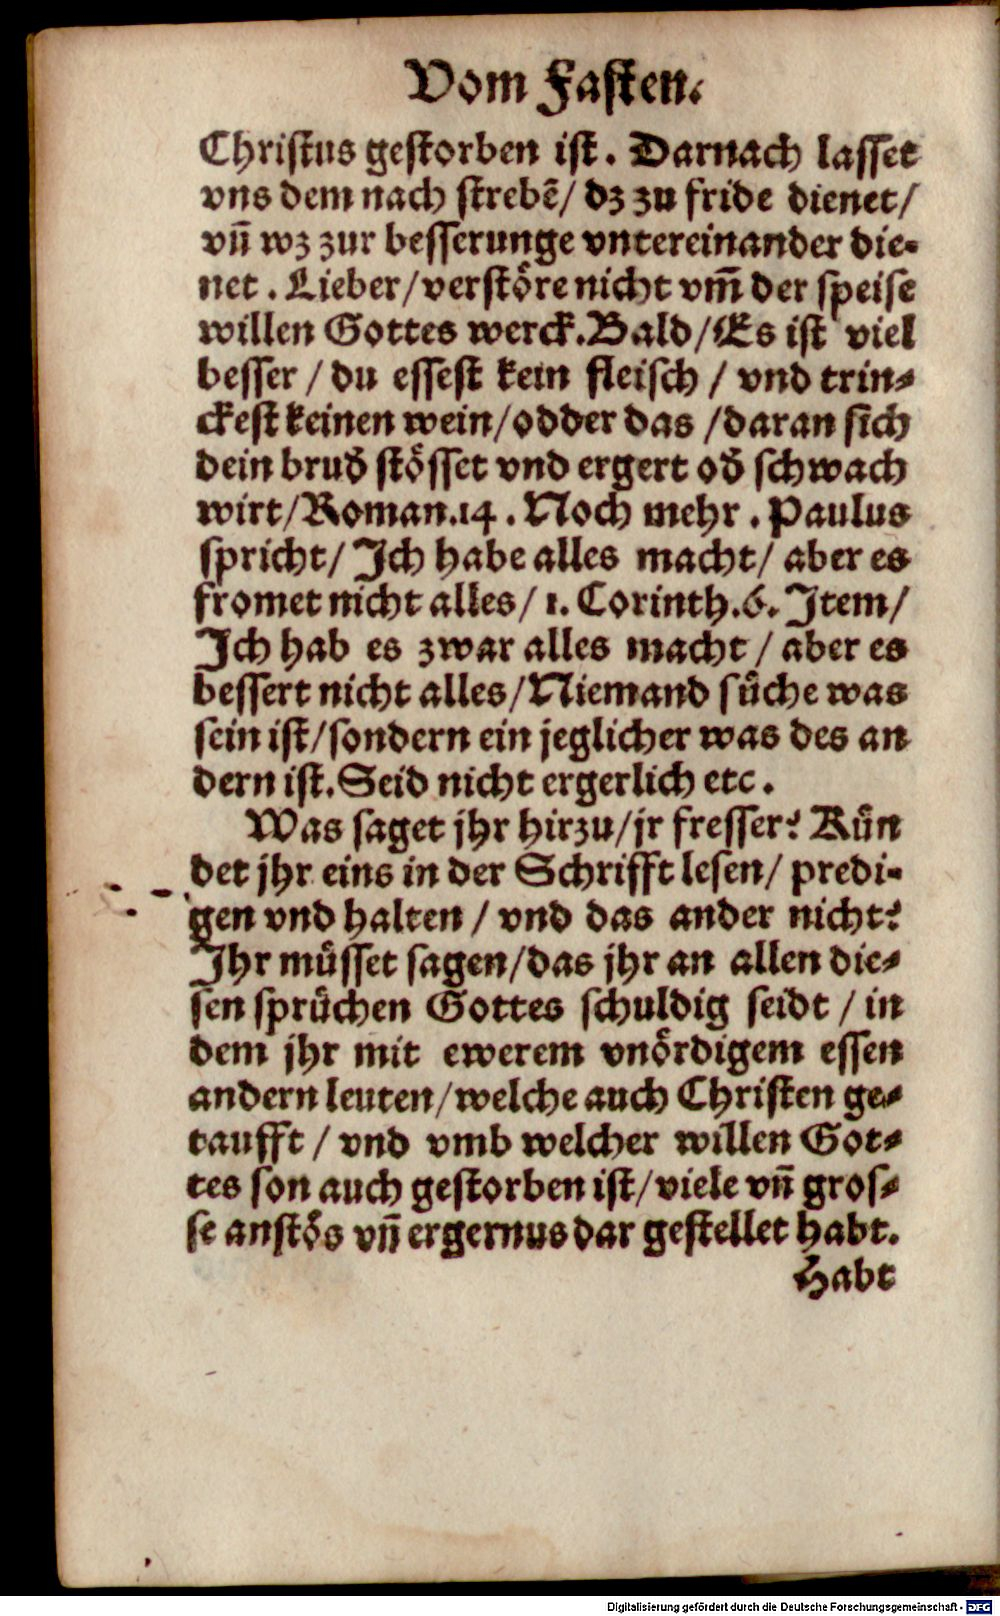 Vom Fasten.
Christus gestorben ist. Darnach lasset
vns dem nach strebē/ dz zu fride dienet/
vn̄ wz zur besserunge vntereinander die-
net. Lieber/verstöre nicht vm̄ der speise
willen Gottes werck. Bald/Es ist viel
besser/du essest kein fleisch/vnd trin-
ckest keinen wein/odder das/daran sich
dein brud̕ stösset vnd ergert od̕ schwach
wirt/Roman.14. Noch mehr. Paulus
spricht/Ich habe alles macht/aber es
fromet nicht alles/1. Corinth.6. Item/
Ich hab es zwar alles macht/aber es
bessert nicht alles/Niemand sůche was
sein ist/sondern ein jeglicher was des an
dern ist. Seid nicht ergerlich etc.
Was saget jhr hirzu/jr fresser? Kün
det jhr eins in der Schrifft lesen/predi-
gen vnd halten/vnd das ander nicht?
Ihr müsset sagen/das jhr an allen die-
sen sprüchen Gottes schuldig seidt/in
dem jhr mit ewerem vnördigem essen
andern leuten/welche auch Christen ge-
taufft/vnd vmb welcher willen Got-
tes son auch gestorben ist/viele vn̄ gros-
se anstös vn̄ ergernus dar gestellet habt.
Habt
Digitalisierung gefördert durch die Deutsche Forschungsgemeinschaft - DFG